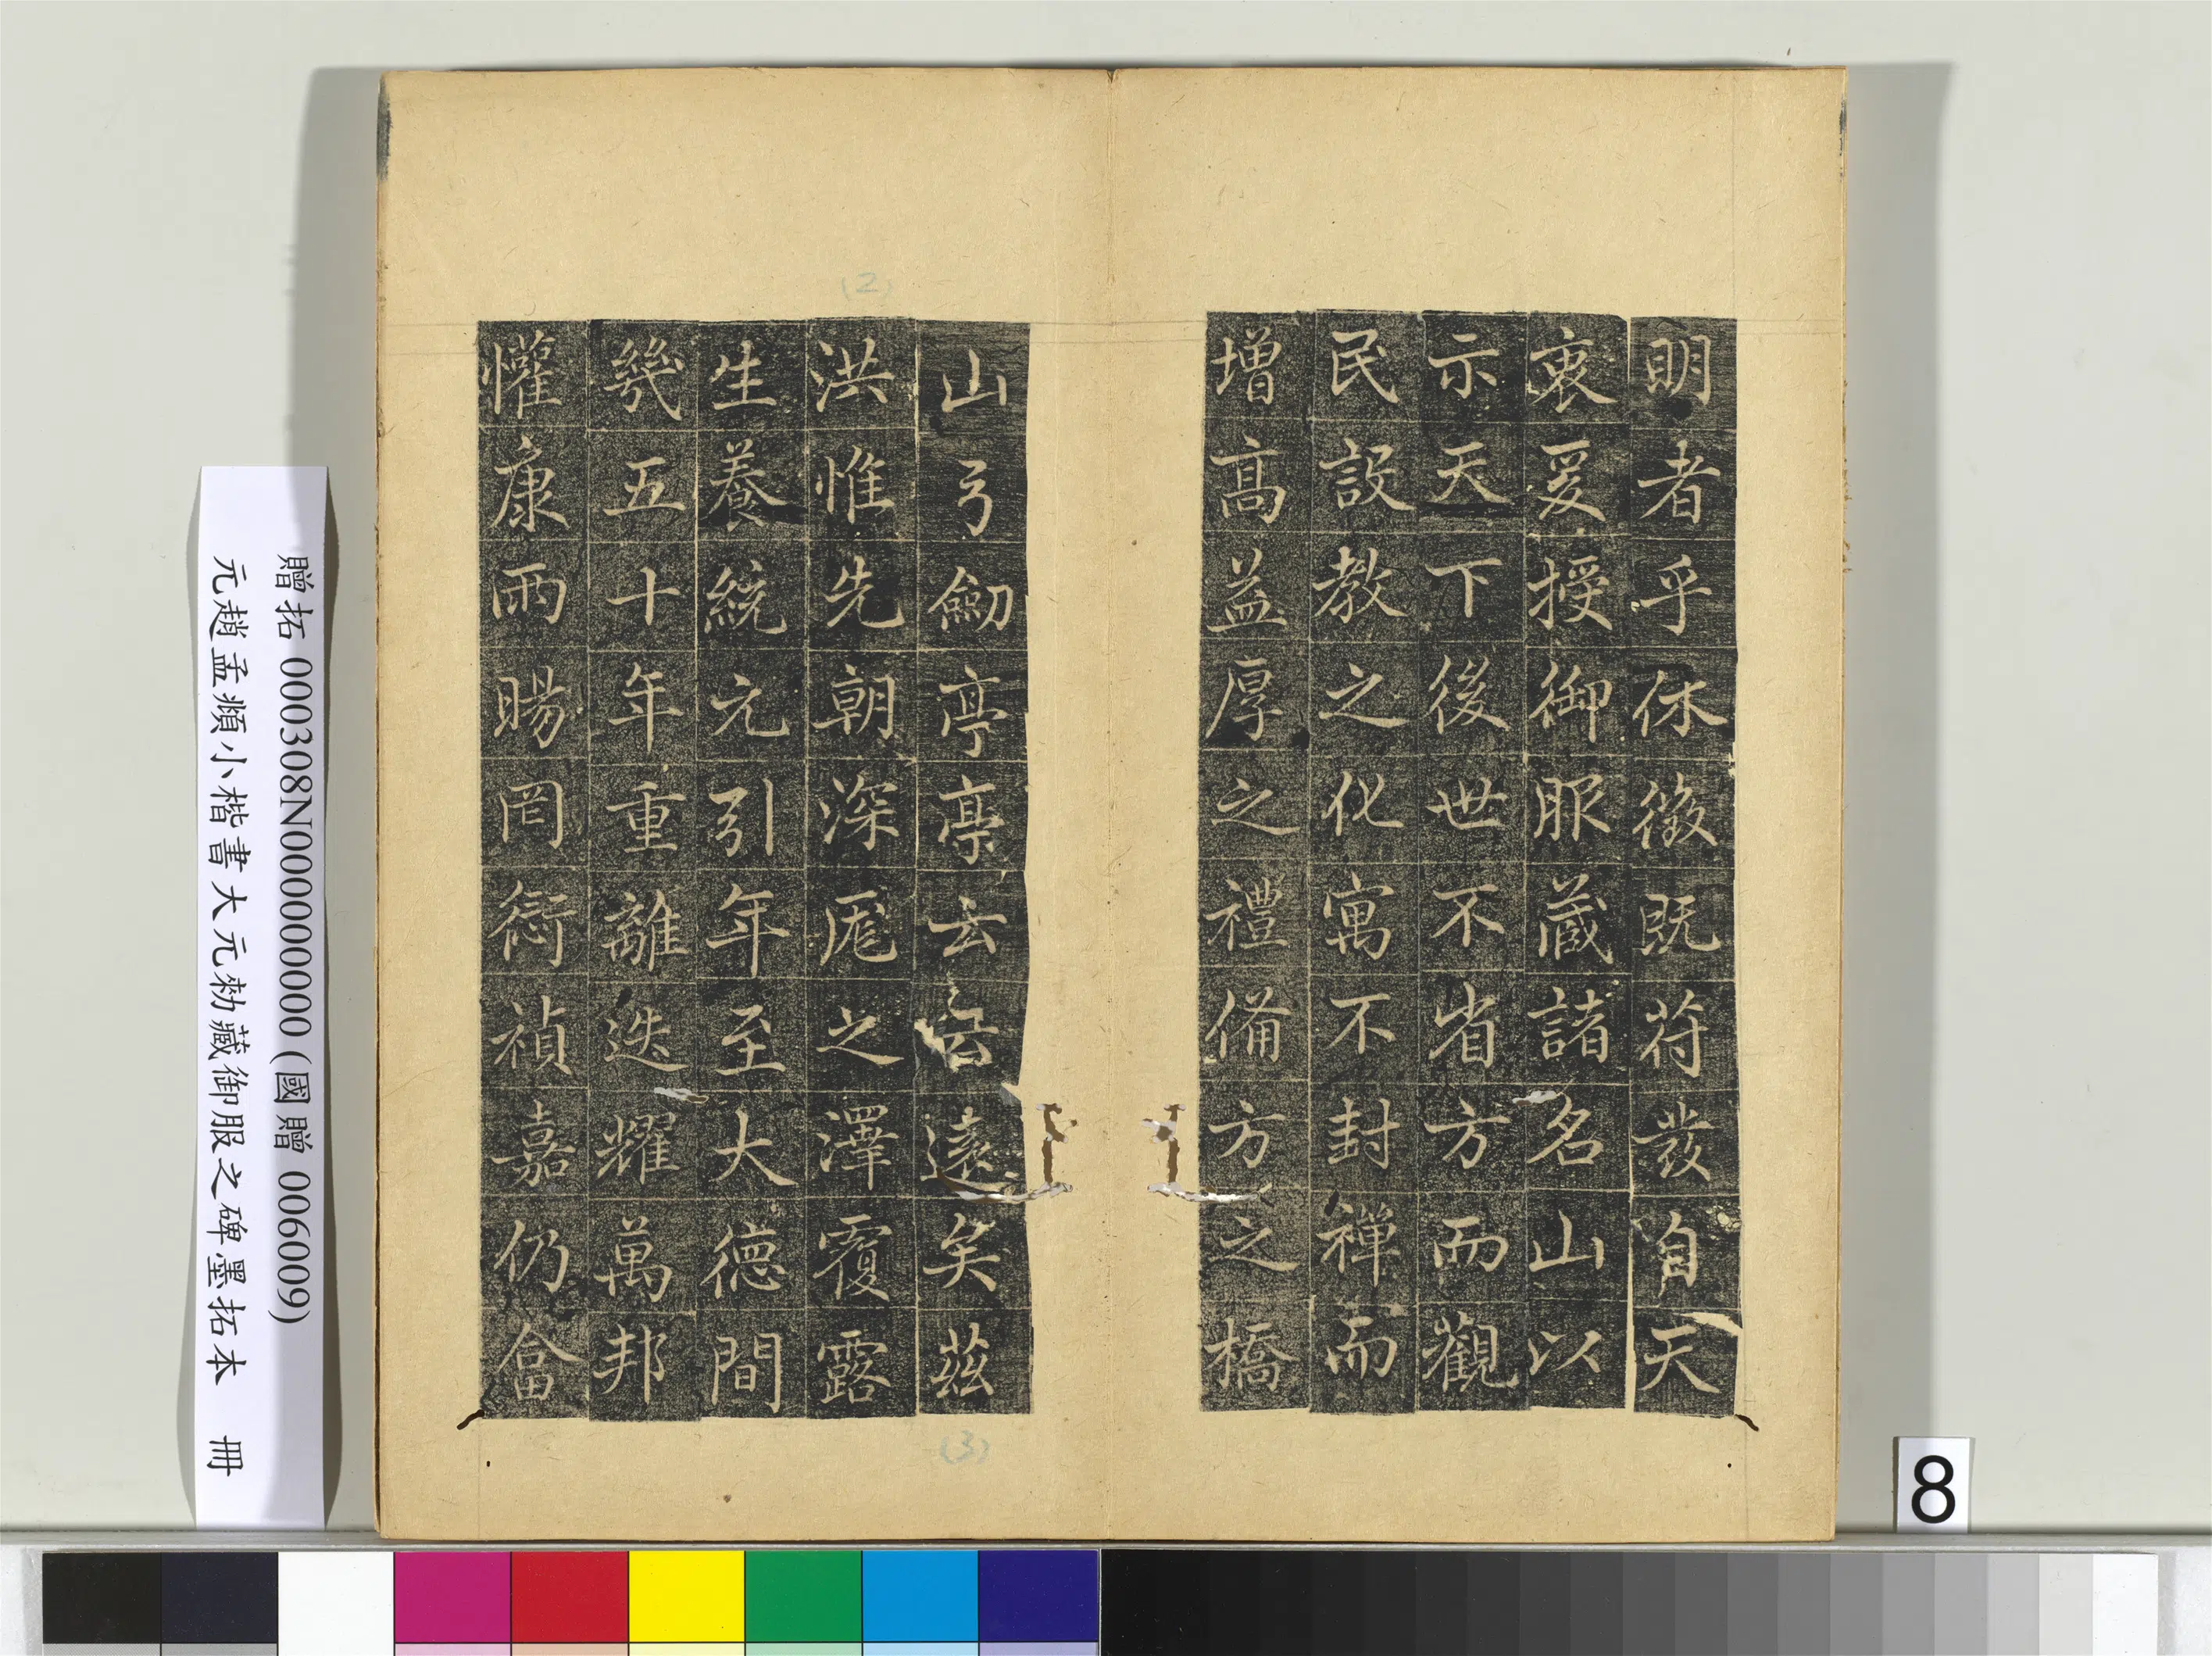 明者乎休徵既苻發自天
衷爰授御服蔵諸名山以
示天下後世不省方而觀
民設教之化寓不封禪而
增高益厚之禮備方之橋
山弓劒亭亭云云遠矣茲
洪惟先朝深厖之澤覆露
生養統元引年至大德間
幾五十年重離迭耀萬邦
懽康雨暘罔衍禎嘉仍畣
(2)
(3)
贈拓 000308N000000000 (國贈 006009)
元趙孟頫小楷書大元勑藏御服之碑墨拓本 冊
8